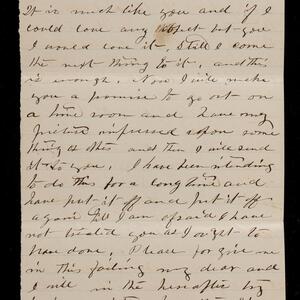 It is much like you and if I
could love any object but you
I would love it. Still I come
the next thing to it, and this
is enough. Now I will make
you a promise to go out on
a time soon and have my
picture impressed upon some
thing or other and then I will send
it to you. I have been intending
to do this for a long time and
have put it off and put it off
again till I am afraid I have
not treated you as I ought to
have done. Please forgive me
in this failing my dear and
I will in the hereafter try